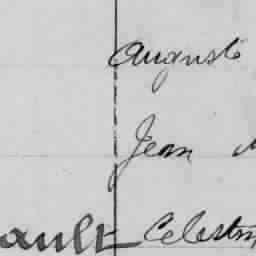 Auguste
Jean
ault Celestin